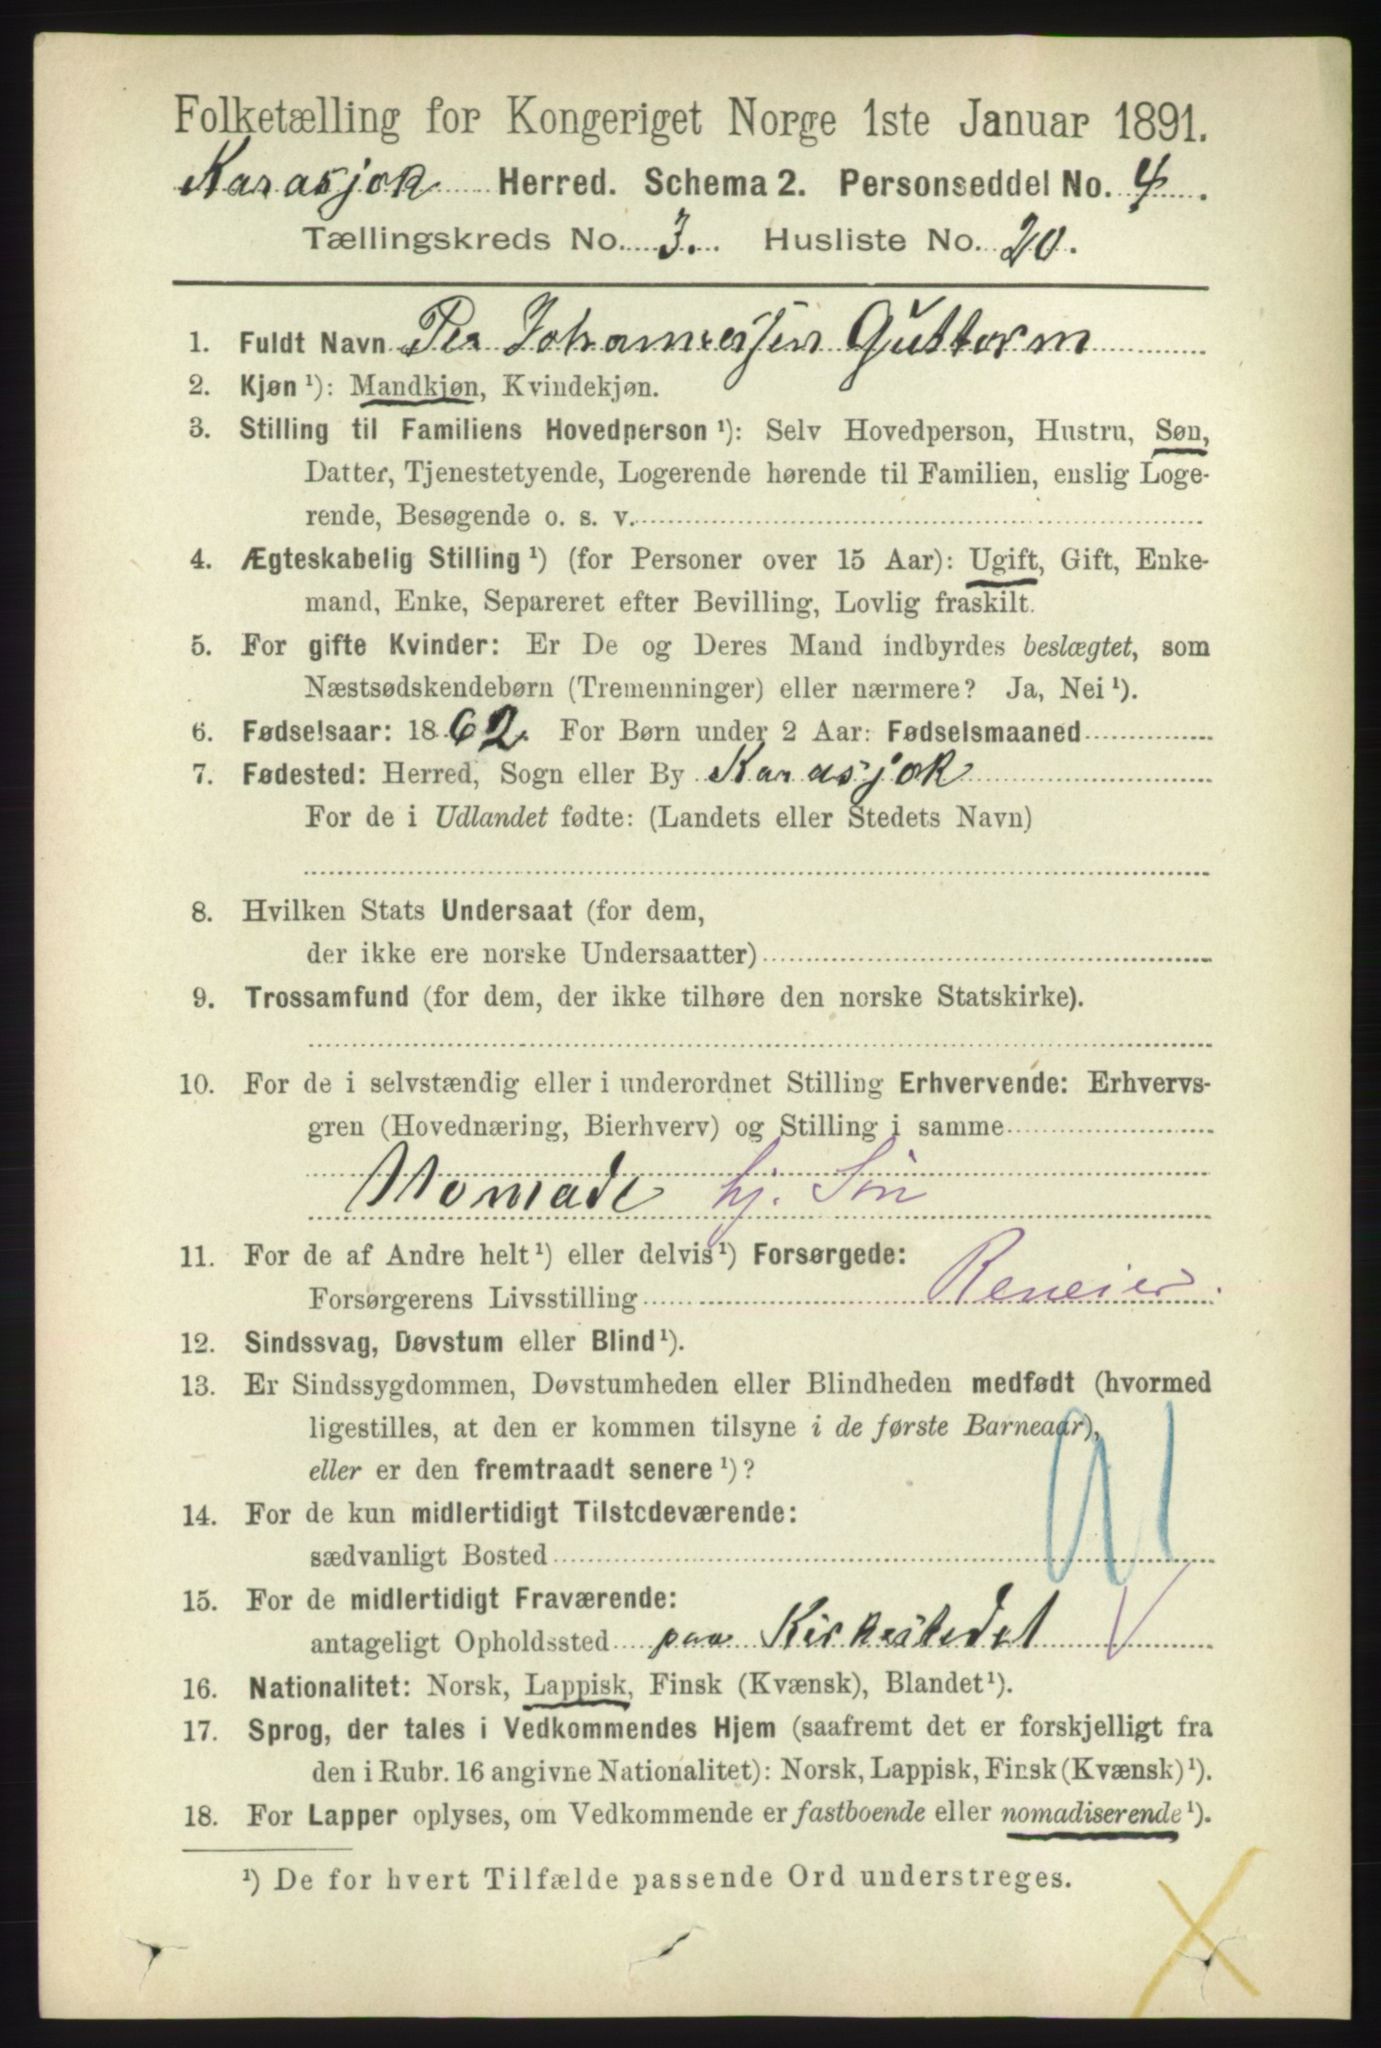 Folketælling for Kongeriget Norge 1ste Januar 1891.
Karasjok Herred. Schema 2. Personseddel No. 4.
Tællingskreds No. 3. Husliste No. 20.
1. Fuldt Navn Per Johannessen Guttorm
2. Kjøn ¹): Mandkjøn, Kvindekjøn.
3. Stilling til Familiens Hovedperson ¹): Selv Hovedperson, Hustru, Søn,
Datter, Tjenestetyende, Logerende hørende til Familien, enslig Loge-
rende, Besøgende o. s. v.
4. Ægteskabelig Stilling ¹) (for Personer over 15 Aar): Ugift, Gift, Enke-
mand, Enke, Separeret efter Bevilling, Lovlig fraskilt.
5. For gifte Kvinder: Er De og Deres Mand indbyrdes beslægtet, som
Næstsødskendebørn (Tremenninger) eller nærmere? Ja, Nei ¹).
6. Fødselsaar: 1862. For Børn under 2 Aar: Fødselsmaaned
7. Fødested: Herred, Sogn eller By Karasjok
For de i Udlandet fødte: (Landets eller Stedets Navn)
8. Hvilken Stats Undersaat (for dem,
der ikke ere norske Undersaatter)
9. Trossamfund (for dem, der ikke tilhøre den norske Statskirke).
10. For de i selvstændig eller i underordnet Stilling Erhvervende: Erhvervs-
gren (Hovednæring, Bierhverv) og Stilling i samme
Nomade hj. Søn
11. For de af Andre helt ¹) eller delvis ¹) Forsørgede:
Forsørgerens Livsstilling Reneier.
12. Sindssvag, Døvstum eller Blind ¹).
13. Er Sindssygdommen, Døvstumheden eller Blindheden medfødt (hvormed
ligestilles, at den er kommen tilsyne i de første Barneaar),
eller er den fremtraadt senere ¹)?
14. For de kun midlertidigt Tilstedeværende:
sædvanligt Bosted
15. For de midlertidigt Fraværende:
antageligt Opholdssted paa Kirkestedet
16. Nationalitet: Norsk, Lappisk, Finsk (Kvænsk), Blandet ¹).
17. Sprog, der tales i Vedkommendes Hjem (saafremt det er forskjelligt fra
den i Rubr. 16 angivne Nationalitet): Norsk, Lappisk, Finsk (Kvænsk) ¹).
18. For Lapper oplyses, om Vedkommende er fastboende eller nomadiserende ¹).
¹) De for hvert Tilfælde passende Ord understreges.